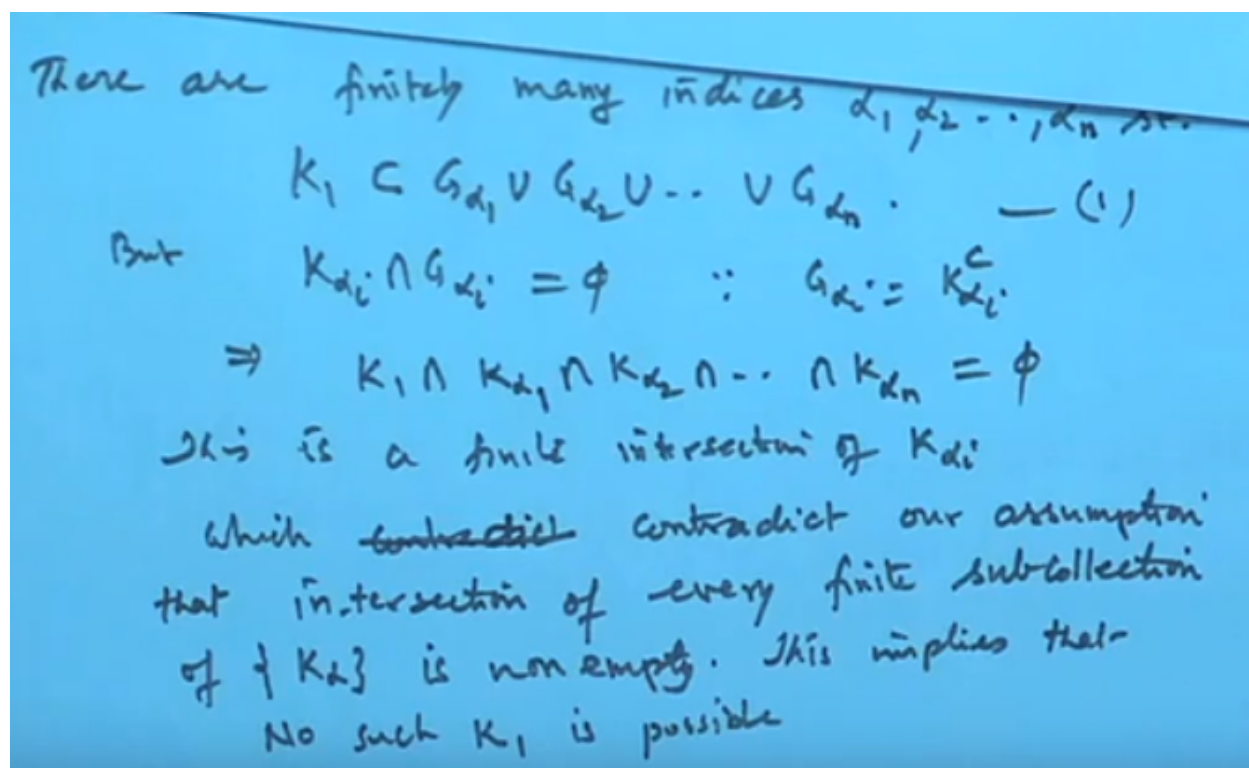 There are finitely many indices α₁, α₂ .., αₙ st.
K₁ ⊂ G_α₁ ∪ G_α₂ ∪ .. ∪ G_αₙ . — (1)
But K_αᵢ ∩ G_αᵢ = φ ∵ G_αᵢ = K_αᵢ^C
⇒ K₁ ∩ K_α₁ ∩ K_α₂ ∩ .. ∩ K_αₙ = φ
This is a finite intersection of K_αᵢ
which contradict contradict our assumption
that intersection of every finite subcollection
of {K_α} is non empty. This implies that
No such K₁ is possible